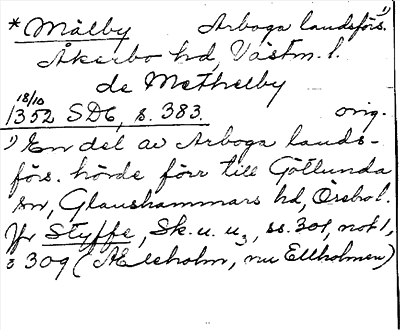 * Mälby Arboga landsförs. 1)
Åkerbo hd, Västm. l.
de Methelby
18/10
1352 SD6, s. 383. orig.
1) En del av Arboga lands-
förs. hörde förr till Götlunda
sn, Glanshammars hd, Örebro l.
Jfr Styffe, Sk. u. u3, ss. 301, not 1,
o 309 (Ælsholm, nu Ellholmen)